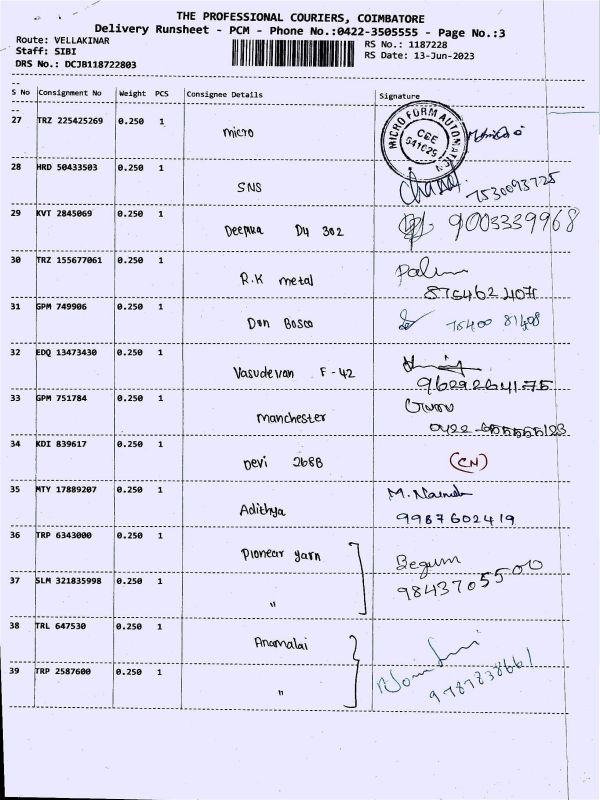 THE PROFESSIONAL COURIERS, COIMBATORE
Delivery Runsheet - PCM - Phone No.:0422-3505555 - Page No.:3
Route: VELLAKINAR
RS No.: 1187228
Staff: SIBI
RS Date: 13-Jun-2023
DRS No.: DCJB118722803
S No Consignment No Weight PCS Consignee Details Signature
27 TRZ 225425269 0.250 1 micro
MICRO FORM AUTOMATION
CBE
641029
28 HRD 50433503 0.250 1 SNS 7530093725
29 KVT 2845069 0.250 1 Deepika D4 302 9003339968
30 TRZ 155677061 0.250 1 R.K metal
8754622407
31 GPM 749906 0.250 1 Don Bosco 76400 81408
32 EDQ 13473430 0.250 1 Vasudevan F-42
9629264175
33 GPM 751784 0.250 1 manchester
34 KDI 839617 0.250 1 Devi 268B (CN)
35 MTY 17889207 0.250 1 Adithya
9987602419
36 TRP 6343000 0.250 1 Pionear yarn Begum
9843705500
37 SLM 321835998 0.250 1 "
38 TRL 647530 0.250 1 Anamalai
39 TRP 2587600 0.250 1 " 9787838661